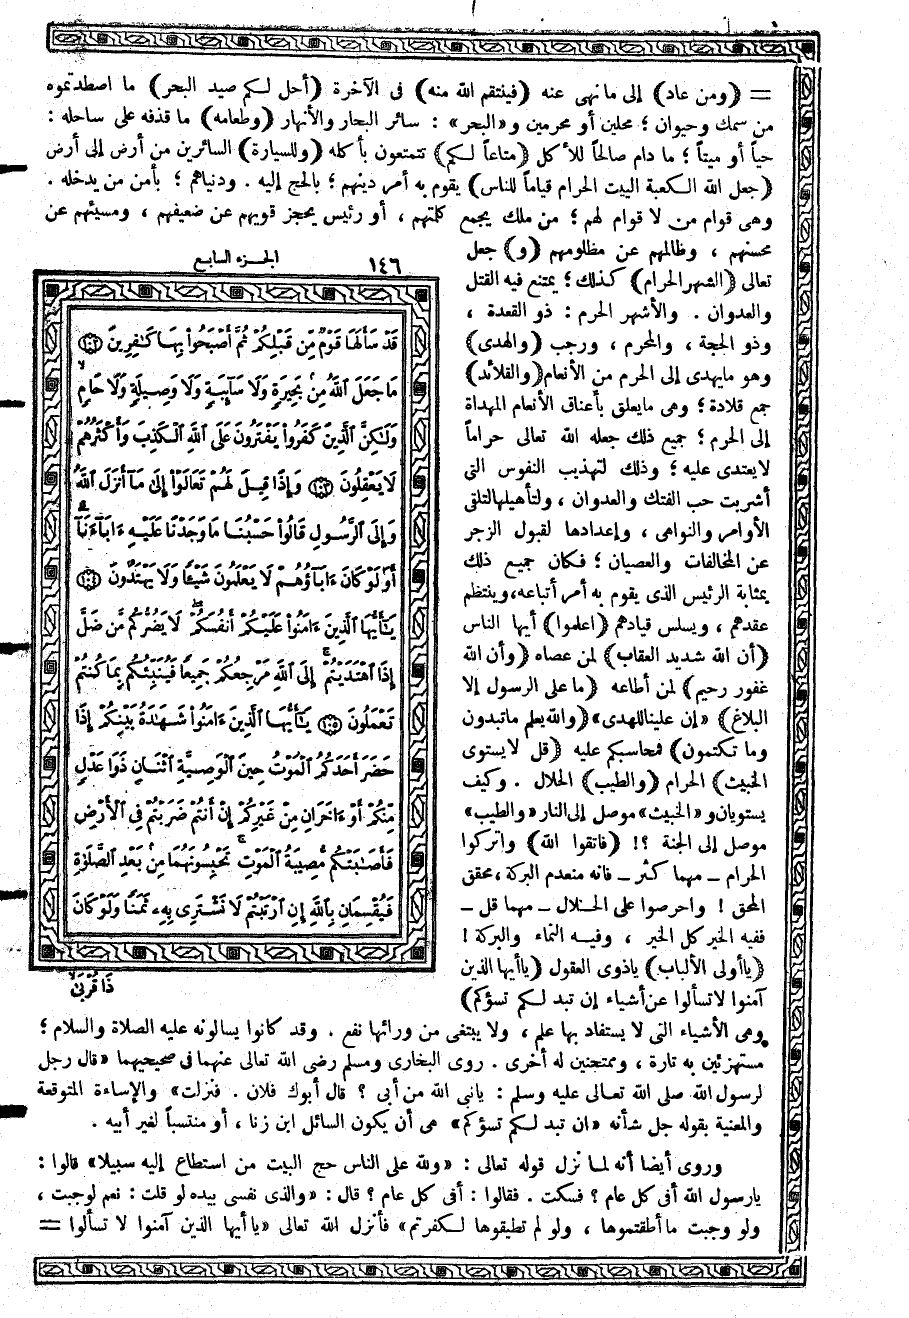 = (ومن عاد) إلى ما نهى عنه (فينتقم الله منه) فى الآخرة (أحل لكم صيد البحر) ما اصطدتموه
من سمك وحيوان ؛ محلين أو محرمين و«البحر» : سائر البحار والأنهار (وطعامه) ما قذفه على ساحله :
حياً أو ميتاً ؛ ما دام صالحاً للأكل (متاعاً لكم) تتمتعون بأكله (وللسيارة) السائرين من أرض إلى أرض
(جعل الله الكعبة البيت الحرام قياماً للناس) يقوم به أمر دينهم ؛ بالحج إليه . ودنياهم ؛ بأمن من يدخله .
وهى قوام من لا قوام لهم ؛ من ملك يجمع كلمتهم ، أو رئيس يحجز قويهم عن ضعيفهم ، ومسيئهم عن
محسنهم ، وظالمهم عن مظلومهم (و) جعل
تعالى (الشهر الحرام) كذلك ؛ يمتنع فيه القتل
والعدوان . والأشهر الحرم : ذو القعدة ،
وذو الحجة ، والمحرم ، ورجب (والهدى)
وهو مايهدى إلى الحرم من الأنعام (والقلائد)
جمع قلادة ؛ وهى مايعلق بأعناق الأنعام المهداة
إلى الحرم ؛ جميع ذلك جعله الله تعالى حراماً
لايعتدى عليه ؛ وذلك لتهذيب النفوس التى
أشربت حب الفتك والعدوان ، ولتأهيلها لتلقى
الأوامر والنواهى ، وإعدادها لقبول الزجر
عن المخالفات والعصيان ؛ فكان جميع ذلك
بمثابة الرئيس الذى يقوم به أمر أتباعه، وينتظم
عقدهم ، ويسلس قيادهم (اعلموا) أيها الناس
(أن الله شديد العقاب) لمن عصاه (وأن الله
غفور رحيم) لمن أطاعه (ما على الرسول إلا
البلاغ) «إن علينا للهدى» (والله يعلم ما تبدون
وما تكتمون) فمحاسبكم عليه (قل لا يستوى
الخبيث) الحرام (والطيب) الحلال . وكيف
يستويان و«الخبيث» موصل إلى النار «والطيب»
موصل إلى الجنة ؟! (فاتقوا الله) واتركوا
الحرام – مهما كثر – فانه منعدم البركة، محقق
المحق ! واحرصوا على الحلال – مهما قل –
ففيه الخير كل الخير ، وفيه النماء والبركة !
(يا أولى الألباب) ياذوى العقول (يا أيها الذين
آمنوا لا تسألوا عن أشياء إن تبد لكم تسؤكم)
وهى الأشياء التى لا يستفاد بها علم ، ولا يبتغى من ورائها نفع . وقد كانوا يسألونه عليه الصلاة والسلام ؛
مستهزئين به تارة ، وممتحنين له أخرى . روى البخارى ومسلم رضى الله تعالى عنهما فى صحيحيهما «قال رجل
لرسول الله صلى الله تعالى عليه وسلم : يانبى الله من أبى ؟ قال أبوك فلان . فنزلت» والإساءة المتوقعة
والمعنية بقوله جل شأنه «ان تبد لكم تسؤكم» هى أن يكون السائل ابن زنا ، أو منتسباً لغير أبيه .
وروى أيضا أنه لما نزل قوله تعالى : «ولله على الناس حج البيت من استطاع إليه سبيلا» قالوا :
يارسول الله أفى كل عام ؟ فسكت . فقالوا : أفى كل عام ؟ قال : «والذى نفسى بيده لو قلت : نعم لوجبت ،
ولو وجبت ما أطقتموها ، ولو لم تطيقوها لكفرتم» فأنزل الله تعالى «يا أيها الذين آمنوا لا تسألوا =
١٤٦ الجزء السابع
قَدْ سَأَلَهَا قَوْمٌ مِّن قَبْلِكُمْ ثُمَّ أَصْبَحُوا۟ بِهَا كَٰفِرِينَ ١٠٢
مَا جَعَلَ ٱللَّهُ مِنۢ بَحِيرَةٍ وَلَا سَآئِبَةٍ وَلَا وَصِيلَةٍ وَلَا حَامٍ
وَلَٰكِنَّ ٱلَّذِينَ كَفَرُوا۟ يَفْتَرُونَ عَلَى ٱللَّهِ ٱلْكَذِبَ وَأَكْثَرُهُمْ
لَا يَعْقِلُونَ ١٠٣ وَإِذَا قِيلَ لَهُمْ تَعَالَوْا۟ إِلَىٰ مَآ أَنزَلَ ٱللَّهُ
وَإِلَى ٱلرَّسُولِ قَالُوا۟ حَسْبُنَا مَا وَجَدْنَا عَلَيْهِ ءَابَآءَنَآ
أَوَلَوْ كَانَ ءَابَآؤُهُمْ لَا يَعْلَمُونَ شَيْـًٔا وَلَا يَهْتَدُونَ ١٠٤
يَٰٓأَيُّهَا ٱلَّذِينَ ءَامَنُوا۟ عَلَيْكُمْ أَنفُسَكُمْ لَا يَضُرُّكُم مَّن ضَلَّ
إِذَا ٱهْتَدَيْتُمْ إِلَى ٱللَّهِ مَرْجِعُكُمْ جَمِيعًا فَيُنَبِّئُكُم بِمَا كُنتُمْ
تَعْمَلُونَ ١٠٥ يَٰٓأَيُّهَا ٱلَّذِينَ ءَامَنُوا۟ شَهَٰدَةُ بَيْنِكُمْ إِذَا
حَضَرَ أَحَدَكُمُ ٱلْمَوْتُ حِينَ ٱلْوَصِيَّةِ ٱثْنَانِ ذَوَا عَدْلٍ
مِّنكُمْ أَوْ ءَاخَرَانِ مِنْ غَيْرِكُمْ إِنْ أَنتُمْ ضَرَبْتُمْ فِى ٱلْأَرْضِ
فَأَصَٰبَتْكُم مُّصِيبَةُ ٱلْمَوْتِ تَحْبِسُونَهُمَا مِنۢ بَعْدِ ٱلصَّلَوٰةِ
فَيُقْسِمَانِ بِٱللَّهِ إِنِ ٱرْتَبْتُمْ لَا نَشْتَرِى بِهِۦ ثَمَنًا وَلَوْ كَانَ
ذَا قُرْبَىٰ